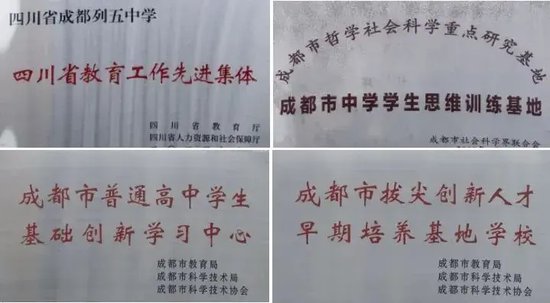 四川省成都列五中学
四川省教育工作先进集体
四川省教育厅
四川省人力资源和社会保障厅
成都市哲学社会科学重点研究基地
成都市中学学生思维训练基地
成都市社会科学界联合会
成都市普通高中学生
基础创新学习中心
成都市教育局
成都市科学技术局
成都市科学技术协会
成都市拔尖创新人才
早期培养基地学校
成都市教育局
成都市科学技术局
成都市科学技术协会